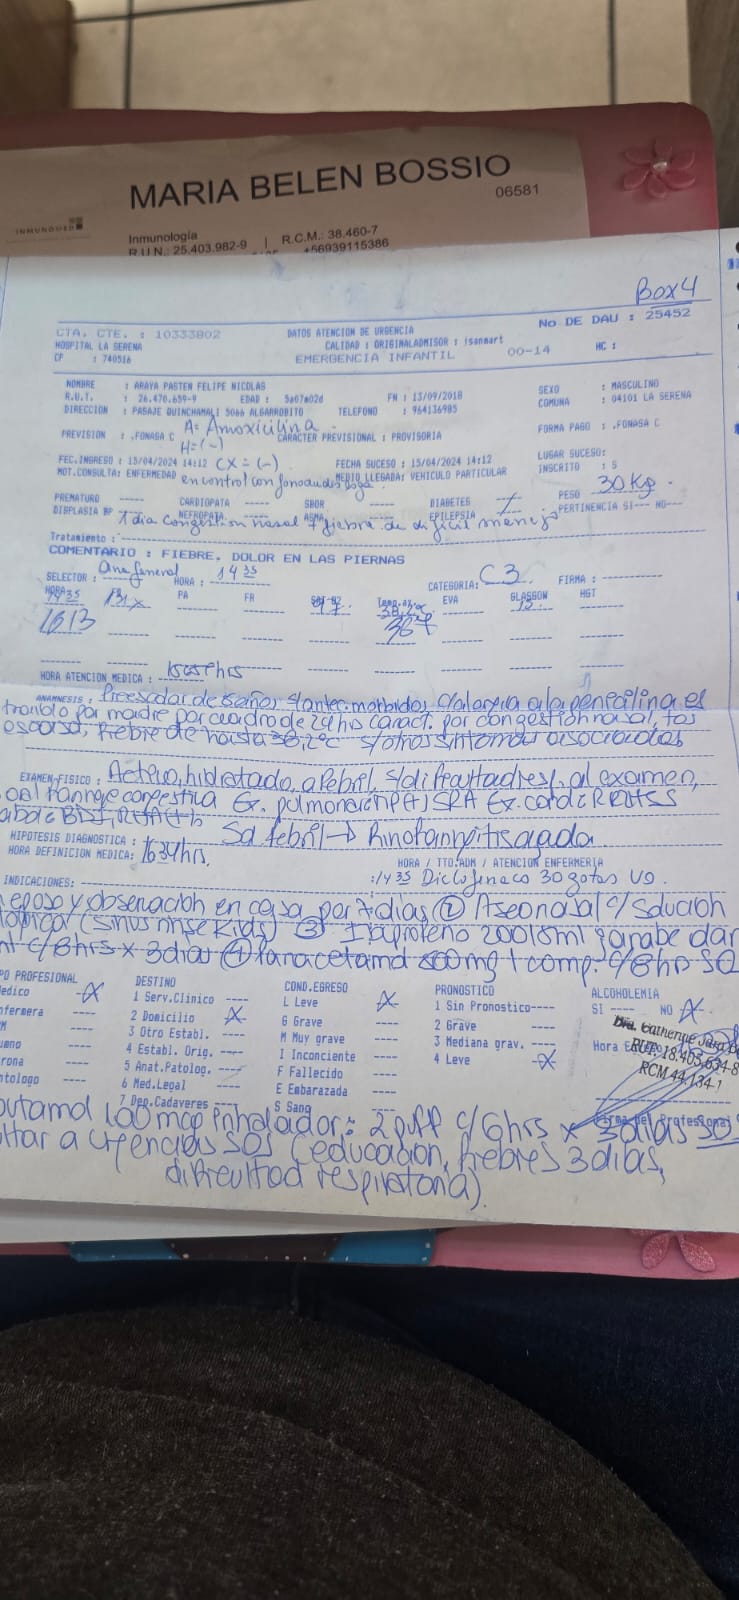 MARIA BELEN BOSSIO
06581
INMUNOMED
Inmunología
R.U.N.: 25.403.982-9 | R.C.M.: 38.460-7
+56939115386
Box 4
CTA. CTE. : 10333802 DATOS ATENCION DE URGENCIA No DE DAU : 25452
HOSPITAL LA SERENA CALIDAD : ORIGINAL ADMISOR : isanmart
CF : 740516 EMERGENCIA INFANTIL 00-14 HC :
NOMBRE : ARAYA PASTEN FELIPE NICOLAS SEXO : MASCULINO
R.U.T. : 26.470.659-9 EDAD : 5a07m02d FN : 13/09/2018 COMUNA : 04101 LA SERENA
DIRECCION : PASAJE QUINCHAMALI 5066 ALGARROBITO TELEFONO : 964136985
A= Amoxicilina
PREVISION : .FONASA C CARACTER PREVISIONAL : PROVISORIA FORMA PAGO : .FONASA C
H= (-)
FEC.INGRESO : 15/04/2024 14:12 CX = (-) FECHA SUCESO : 15/04/2024 14:12 LUGAR SUCESO:
MOT.CONSULTA: ENFERMEDAD en control con MEDIO LLEGADA: VEHICULO PARTICULAR INSCRITO : S
PREMATURO ----- CARDIOPATA ----- SBOR ----- DIABETES PESO 30 Kg.
DISPLASIA BP NEFROPATA ASMA EPILEPSIA PERTINENCIA SI--- NO---
1 dia congestion nasal + fiebre de dificil manejo
Tratamiento :
COMENTARIO : FIEBRE, DOLOR EN LAS PIERNAS
SELECTOR : HORA : 14 35 CATEGORIA: C3. FIRMA :
HORA PA FR SAT.O2 Temp.ax. EVA GLASGOW HGT
14 35 131x 97 38,2°c 15
1613
HORA ATENCION MEDICA : hrs
ANAMNESIS : Preescolar de 5 años, s/antec. morbidos, c/alergia a la penicilina es
traido por madre por cuadro de 24 hrs caract. por congestion nasal, tos
escasa, fiebre de hasta 38,2°c s/otros sintomas asociados
EXAMEN FISICO : Activo, hidratado, afebril, s/dificultad resp. al examen,
faringe congestiva Ex. pulmonar: MP(+) SRA Ex. card: RR2TSS
HIPOTESIS DIAGNOSTICA : Sd febril → Rinofaringitis aguda
HORA DEFINICION MEDICA: 1634 hrs.
HORA / TTO.ADM / ATENCION ENFERMERIA
:14 35 Diclofenaco 30 gotas VO.
INDICACIONES:
reposo y observacion en casa por 7 dias ② Aseo nasal c/ Solucion
(sinus rinse kids) ③ Ibuprofeno 200/5ml jarabe dar
c/8hrs x 3dias ④ Paracetamol 1 comp. c/8hrs SOS
PROFESIONAL DESTINO COND.EGRESO PRONOSTICO ALCOHOLEMIA
Medico X 1 Serv.Clinico ---- L Leve X 1 Sin Pronostico---- SI ---- NO X
nfermera ---- 2 Domicilio X G Grave ---- 2 Grave ----
M ---- 3 Otro Establ. ---- M Muy grave ---- 3 Mediana grav. ----
4 Establ. Orig. ---- I Inconciente ---- 4 Leve X
5 Anat.Patolog. F Fallecido ----
6 Med.Legal ---- E Embarazada ----
7 Dep.Cadaveres ---- S Sano
Dra. Catherine Jara
RUT: 18.403.634-8
RCM 44.134-1
Firma del Profesional
100 mcg inhalador: 2 puff c/6hrs x 3 dias SOS
a urgencias SOS (educacion, fiebre ≥ 3 dias,
dificultad respiratoria).